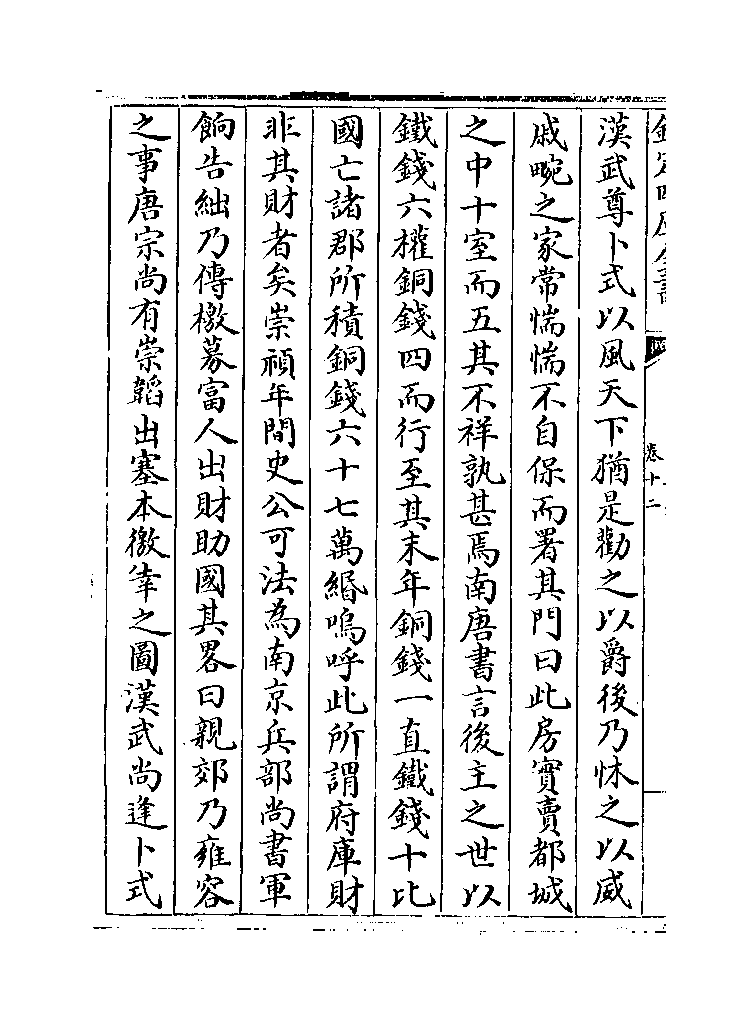 欽定四庫全書
卷十二
漢武尊卜式以風天下猶是勸之以爵後乃怵之以威
戚畹之家常惴惴不自保而署其門曰此房實賣都城
之中十室而五其不祥孰甚焉南唐書言後主之世以
鐵錢六權銅錢四而行至其末年銅錢一直鐵錢十比
國亡諸郡所積銅錢六十七萬緡嗚呼此所謂府庫財
非其財者矣崇禎年間史公可法為南京兵部尚書軍
餉告絀乃傳檄募富人出財助國其畧曰親郊乃雍容
之事唐宗尚有崇韜出塞本徼幸之圖漢武尚逢卜式